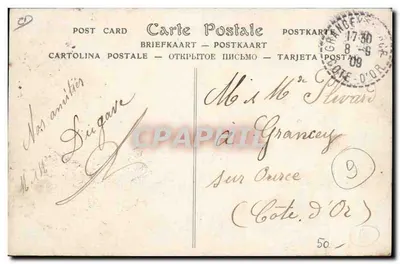 POST CARD Carte Postale POSTKARTE
BRIEFKAART — POSTKAART
CARTOLINA POSTALE — ОТКРЫТОЕ ПИСЬМО — TARJETA POSTAL
17 30
8 - 6
09
COTE-D'OR
Nos amitiés
Dugave
M & Me
à Grancey
sur Ource
(Côte d'Or)
9
50 -
CPARAMA